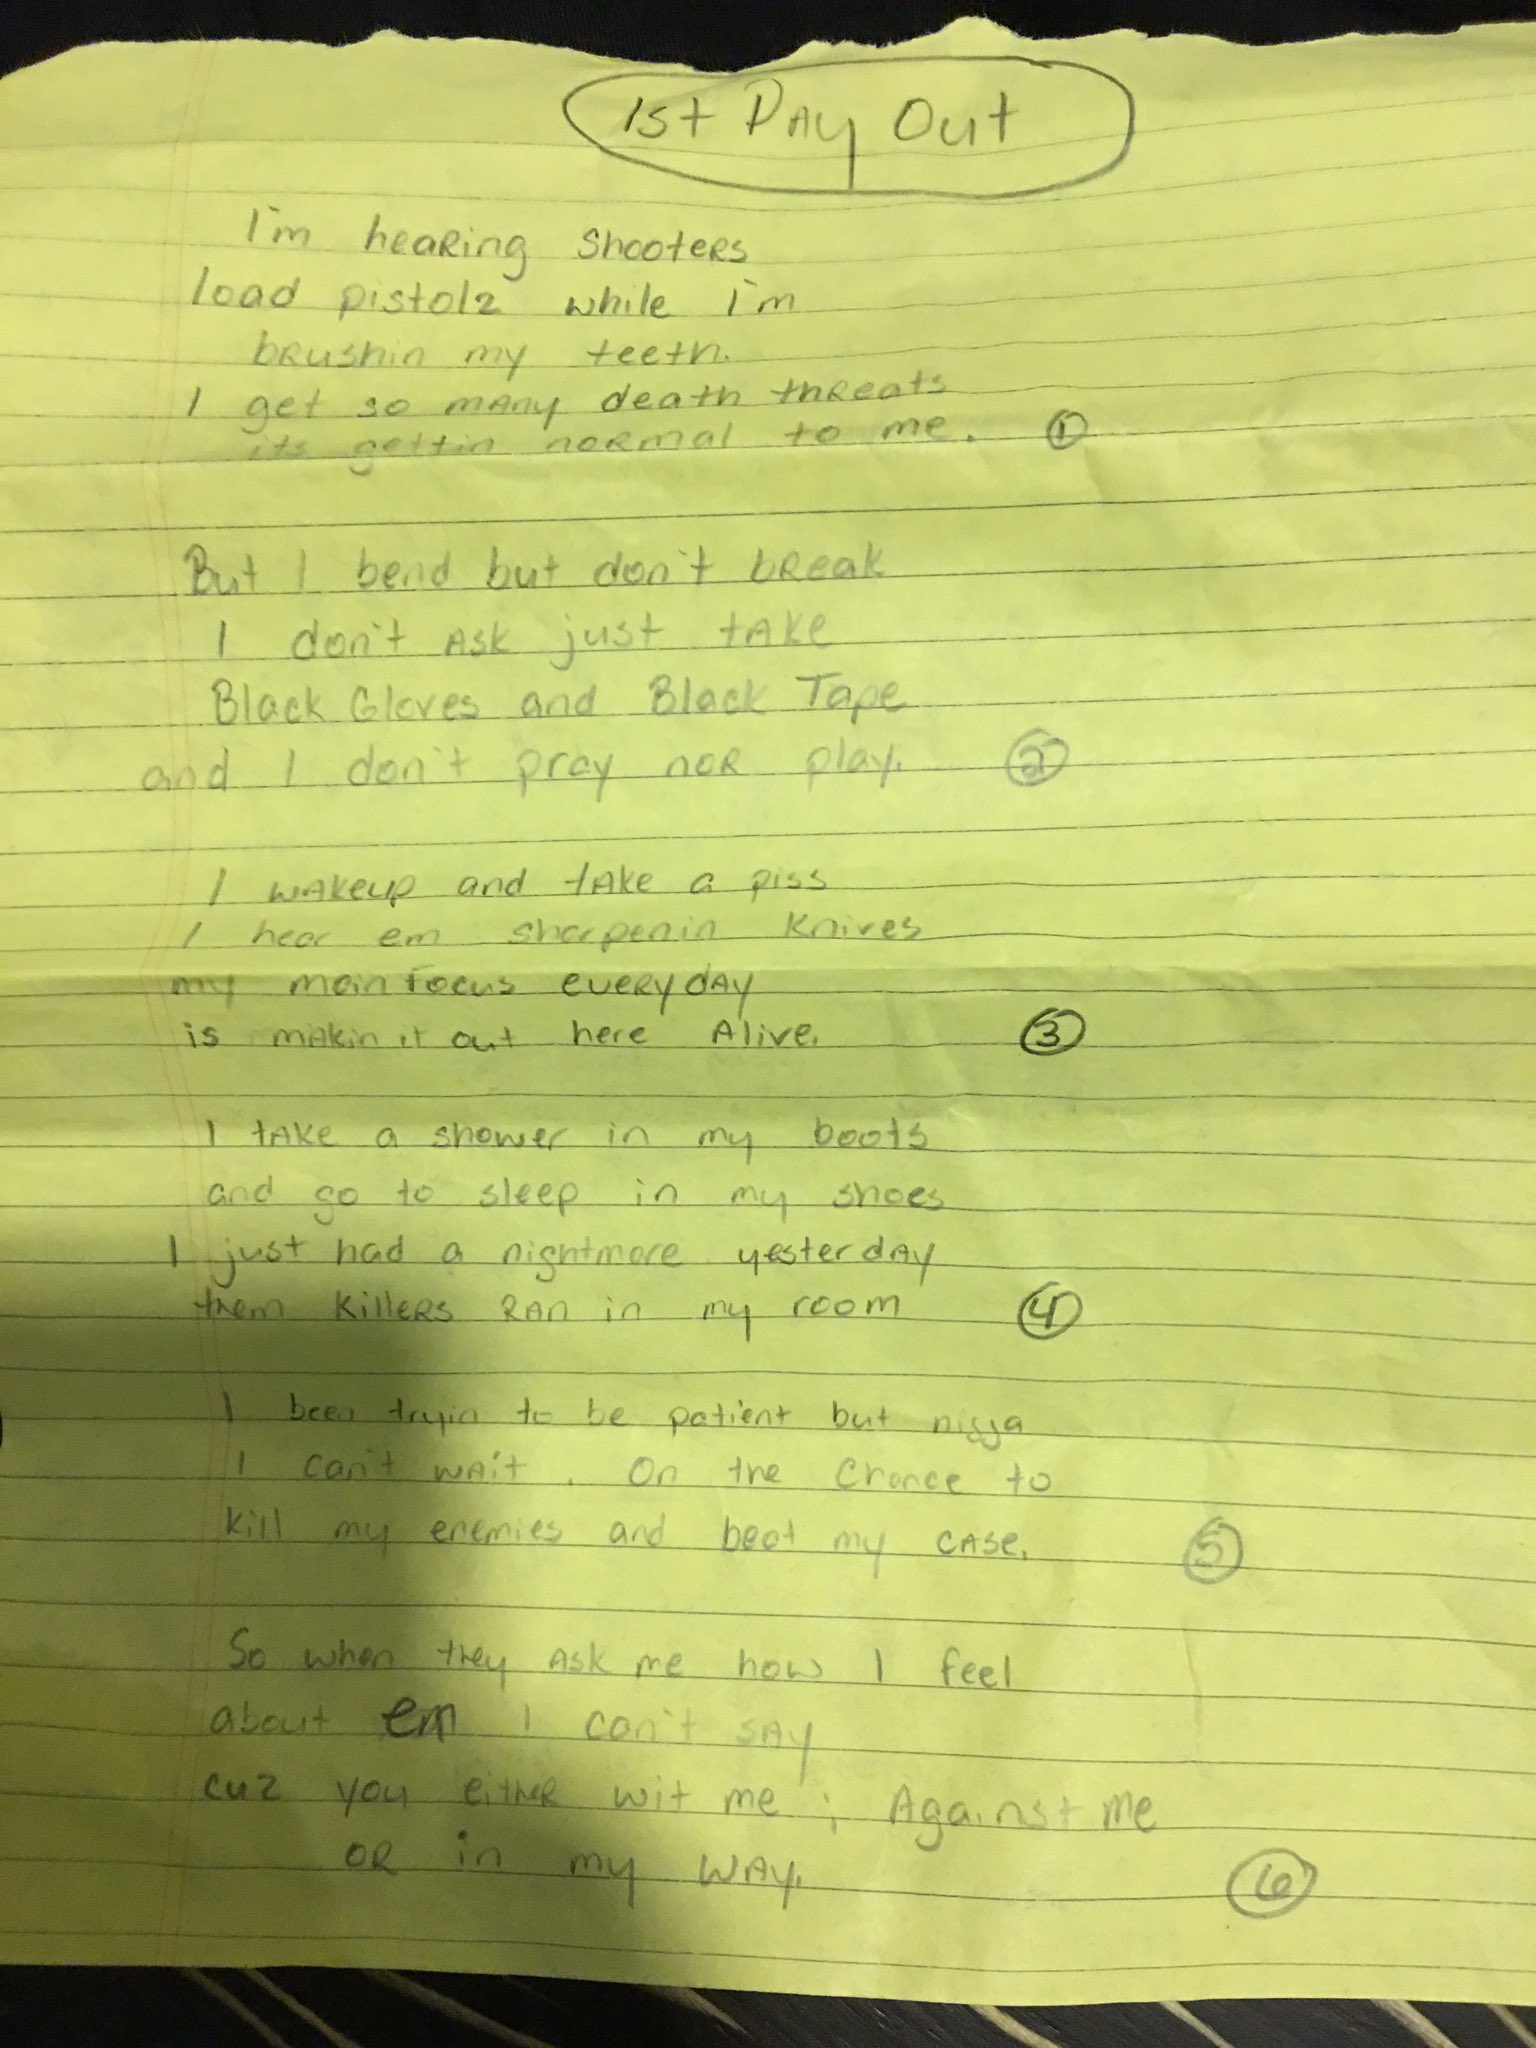 1st Pay Out
I'm hearing shooters
load pistolz while I'm
brushin my teeth.
I get so many death threats
its gettin normal to me. 1
But I bend but don't break
I don't ask just take
Black Gloves and Black Tape
and I don't pray nor play. 2
I wakeup and take a piss
I hear em sharpenin knives
my main focus everyday
is makin it out here Alive. 3
I take a shower in my boots
and go to sleep in my shoes
I just had a nightmare yesterday
them killers ran in my room 4
I been tryin to be patient but nigga
I can't wait. On the chance to
kill my enemies and beat my case. 5
So when they ask me how I feel
about em I can't say
cuz you either wit me; Against me
OR in my way. 6